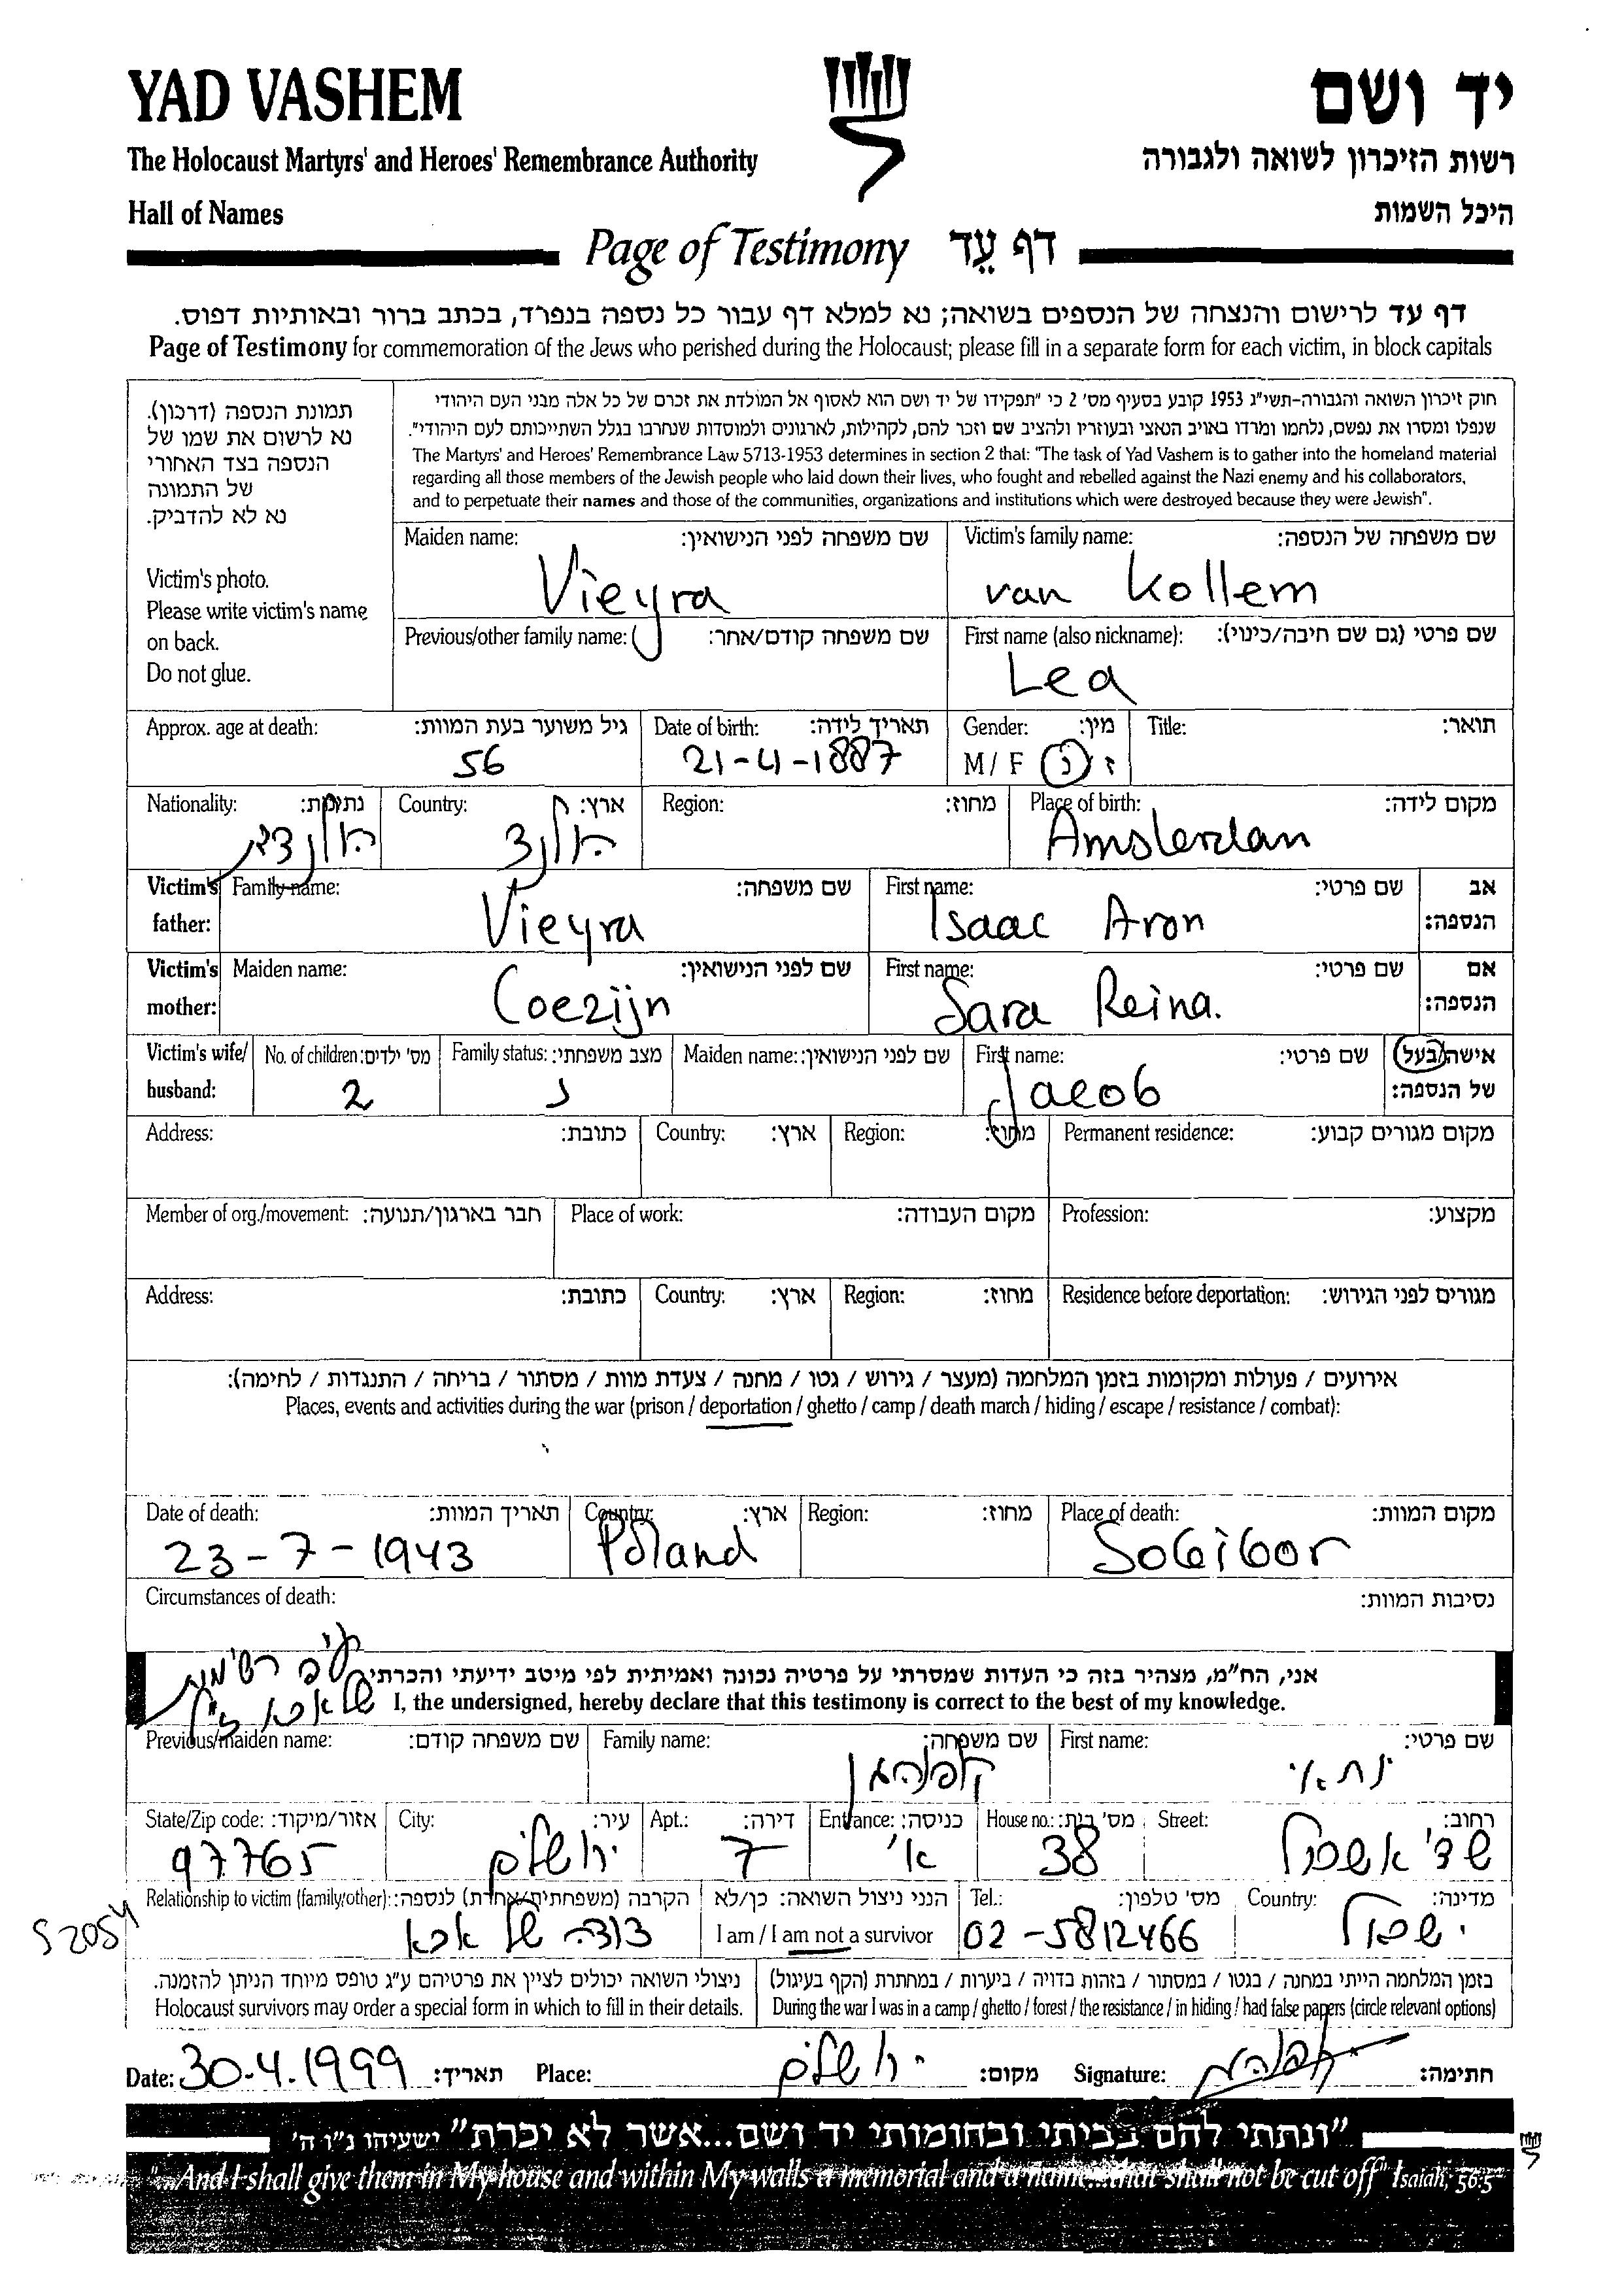 YAD VASHEM
יד ושם
The Holocaust Martyrs' and Heroes' Remembrance Authority
רשות הזיכרון לשואה ולגבורה
Hall of Names
היכל השמות
Page of Testimony דף עֵד
דף עד לרישום והנצחה של הנספים בשואה; נא למלא דף עבור כל נספה בנפרד, בכתב ברור ובאותיות דפוס.
Page of Testimony for commemoration of the Jews who perished during the Holocaust; please fill in a separate form for each victim, in block capitals
תמונת הנספה (דרכון).
נא לרשום את שמו של
הנספה בצד האחורי
של התמונה
נא לא להדביק.
Victim's photo.
Please write victim's name
on back.
Do not glue.
חוק זיכרון השואה והגבורה-תשי"ג 1953 קובע בסעיף מס' 2 כי "תפקידו של יד ושם הוא לאסוף אל המולדת את זכרם של כל אלה מבני העם היהודי
שנפלו ומסרו את נפשם, נלחמו ומרדו באויב הנאצי ובעוזריו ולהציב שם וזכר להם, לקהילות, לארגונים ולמוסדות שנחרבו בגלל השתייכותם לעם היהודי".
The Martyrs' and Heroes' Remembrance Law 5713-1953 determines in section 2 that: "The task of Yad Vashem is to gather into the homeland material
regarding all those members of the Jewish people who laid down their lives, who fought and rebelled against the Nazi enemy and his collaborators,
and to perpetuate their names and those of the communities, organizations and institutions which were destroyed because they were Jewish".
Maiden name: שם משפחה לפני הנישואין:
Vieyra
Victim's family name: שם משפחה של הנספה:
van Kollem
Previous/other family name: שם משפחה קודם/אחר:
First name (also nickname): שם פרטי (גם שם חיבה/כינוי):
Lea
Approx. age at death: גיל משוער בעת המוות:
56
Date of birth: תאריך לידה:
21-4-1887
Gender: מין:
M / F ז / נ
Title: תואר:
Nationality: נתינות:
הולנדית
Country: ארץ:
הולנד
Region: מחוז:
Place of birth: מקום לידה:
Amsterdam
Victim's father: Family name: שם משפחה:
Vieyra
First name: שם פרטי: אב הנספה:
Isaac Aron
Victim's mother: Maiden name: שם לפני הנישואין:
Coezijn
First name: שם פרטי: אם הנספה:
Sara Reina.
Victim's wife/ husband: No. of children: מס' ילדים:
2
Family status: מצב משפחתי:
נ
Maiden name: שם לפני הנישואין:
First name: שם פרטי: אישה/בעל של הנספה:
Jacob
Address: כתובת: Country: ארץ: Region: מחוז: Permanent residence: מקום מגורים קבוע:
Member of org./movement: חבר בארגון/תנועה: Place of work: מקום העבודה: Profession: מקצוע:
Address: כתובת: Country: ארץ: Region: מחוז: Residence before deportation: מגורים לפני הגירוש:
אירועים / פעולות ומקומות בזמן המלחמה (מעצר / גירוש / גטו / מחנה / צעדת מוות / מסתור / בריחה / התנגדות / לחימה):
Places, events and activities during the war (prison / deportation / ghetto / camp / death march / hiding / escape / resistance / combat):
Date of death: תאריך המוות:
23-7-1943
Country: ארץ:
Poland
Region: מחוז:
Place of death: מקום המוות:
Sobibor
Circumstances of death: נסיבות המוות:
עפ"י רשימות
של אבא ז"ל
אני, הח"מ, מצהיר בזה כי העדות שמסרתי על פרטיה נכונה ואמיתית לפי מיטב ידיעתי והכרתי
I, the undersigned, hereby declare that this testimony is correct to the best of my knowledge.
Previous/maiden name: שם משפחה קודם:
Family name: שם משפחה:
קלפהאן
First name: שם פרטי:
State/Zip code: אזור/מיקוד:
97765
City: עיר:
ירושלים
Apt.: דירה:
7
Entrance: כניסה:
א'
House no.: מס' בית:
38
Street: רחוב:
שד' אשכול
Relationship to victim (family/other): הקרבה (משפחתית/אחרת) לנספה:
דודה של אבא
הנני ניצול השואה: כן/לא
I am / I am not a survivor
Tel.: מס' טלפון:
02-5812466
Country: מדינה:
ישראל
52054
ניצולי השואה יכולים לציין את פרטיהם ע"ג טופס מיוחד הניתן להזמנה.
Holocaust survivors may order a special form in which to fill in their details.
בזמן המלחמה הייתי במחנה / בגטו / במסתור / בזהות בדויה / ביערות / במחתרת (הקף בעיגול)
During the war I was in a camp / ghetto / forest / the resistance / in hiding / had false papers (circle relevant options)
Date: 30.4.1999 תאריך: Place: ירושלים מקום: Signature: חתימה:
"ונתתי להם בביתי ובחומותי יד ושם...אשר לא יכרת" ישעיהו נ"ו ה'
"...And I shall give them in My house and within My walls a memorial and a name...that shall not be cut off" Isaiah, 56:5